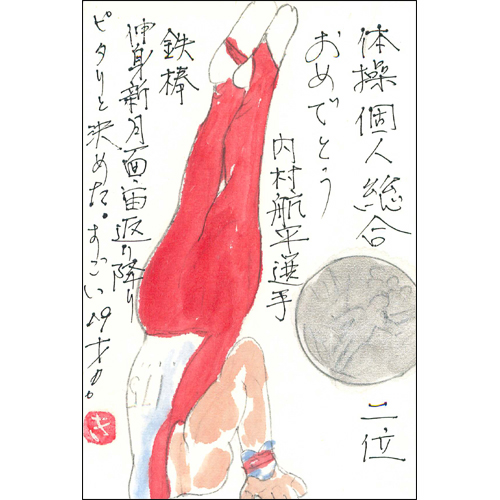 体操個人総合 二位
おめでとう
内村航平選手
鉄棒
伸身新月面宙返り降り
ピタリと決めた。すっごい19才
き